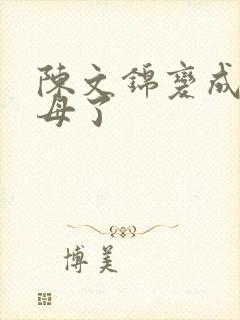 陳文錦變成
母了
博美